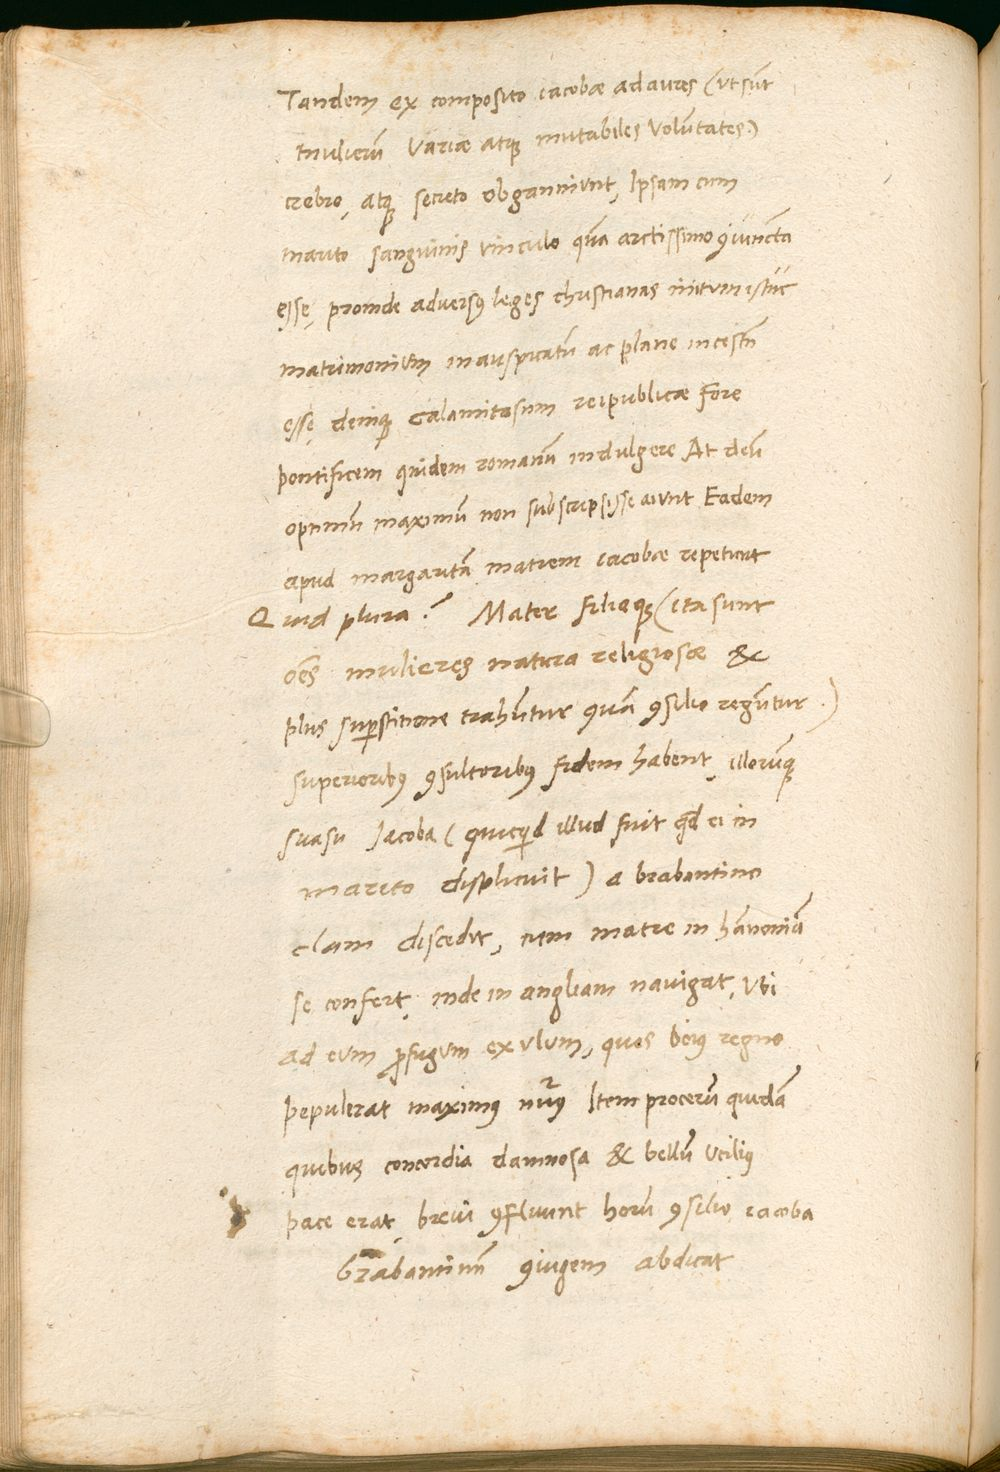 Tandem ex composito iacobæ ad aures (ut sūt
mulierū variæ atq; mutabiles volūtates.)
crebro, atq; secreto obganniunt, Ipsam cum
marito sanguinis vinculo quā arctissimo ꝯiuncta
esse, proinde adversꝰ leges christianas initum istuc
matrimonium inauspicatū ac plane incestū
esse, deniq; calamitosum reipublicæ fore
pontificem quidem romanū indulgere At deū
optimū maximū non subscripsisse aiunt Eadem
apud margaritā matrem iacobæ repetunt
Quid plura? Mater filiaq; (ita sunt
oēs mulieres natura religiosæ &
plus suꝑstitione trahūtur quā ꝯsilio regūtur.)
superioribꝰ ꝯsultoribꝰ fidem habent, illorūq;
suasu Jacoba (quicqd illud fuit qd ei in
marito displicuit) a brabantino
clam discedit, cum matre in hānoniā
se confert, inde in angliam navigat, Ubi
ad eum ꝓfugum exulum, quos boiꝰ regno
pepulerat maximꝰ nūꝰ Item procerū quidā
quibus concordia damnosa & bellū utiliꝰ
pace erat, brevi ꝯfluunt horū ꝯsilio iacoba
brabantinū ꝯiugem abdicat